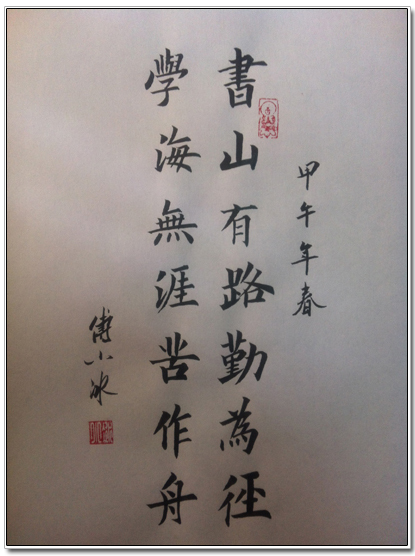 甲午年春
書山有路勤為徑
學海無涯苦作舟
傅小冰